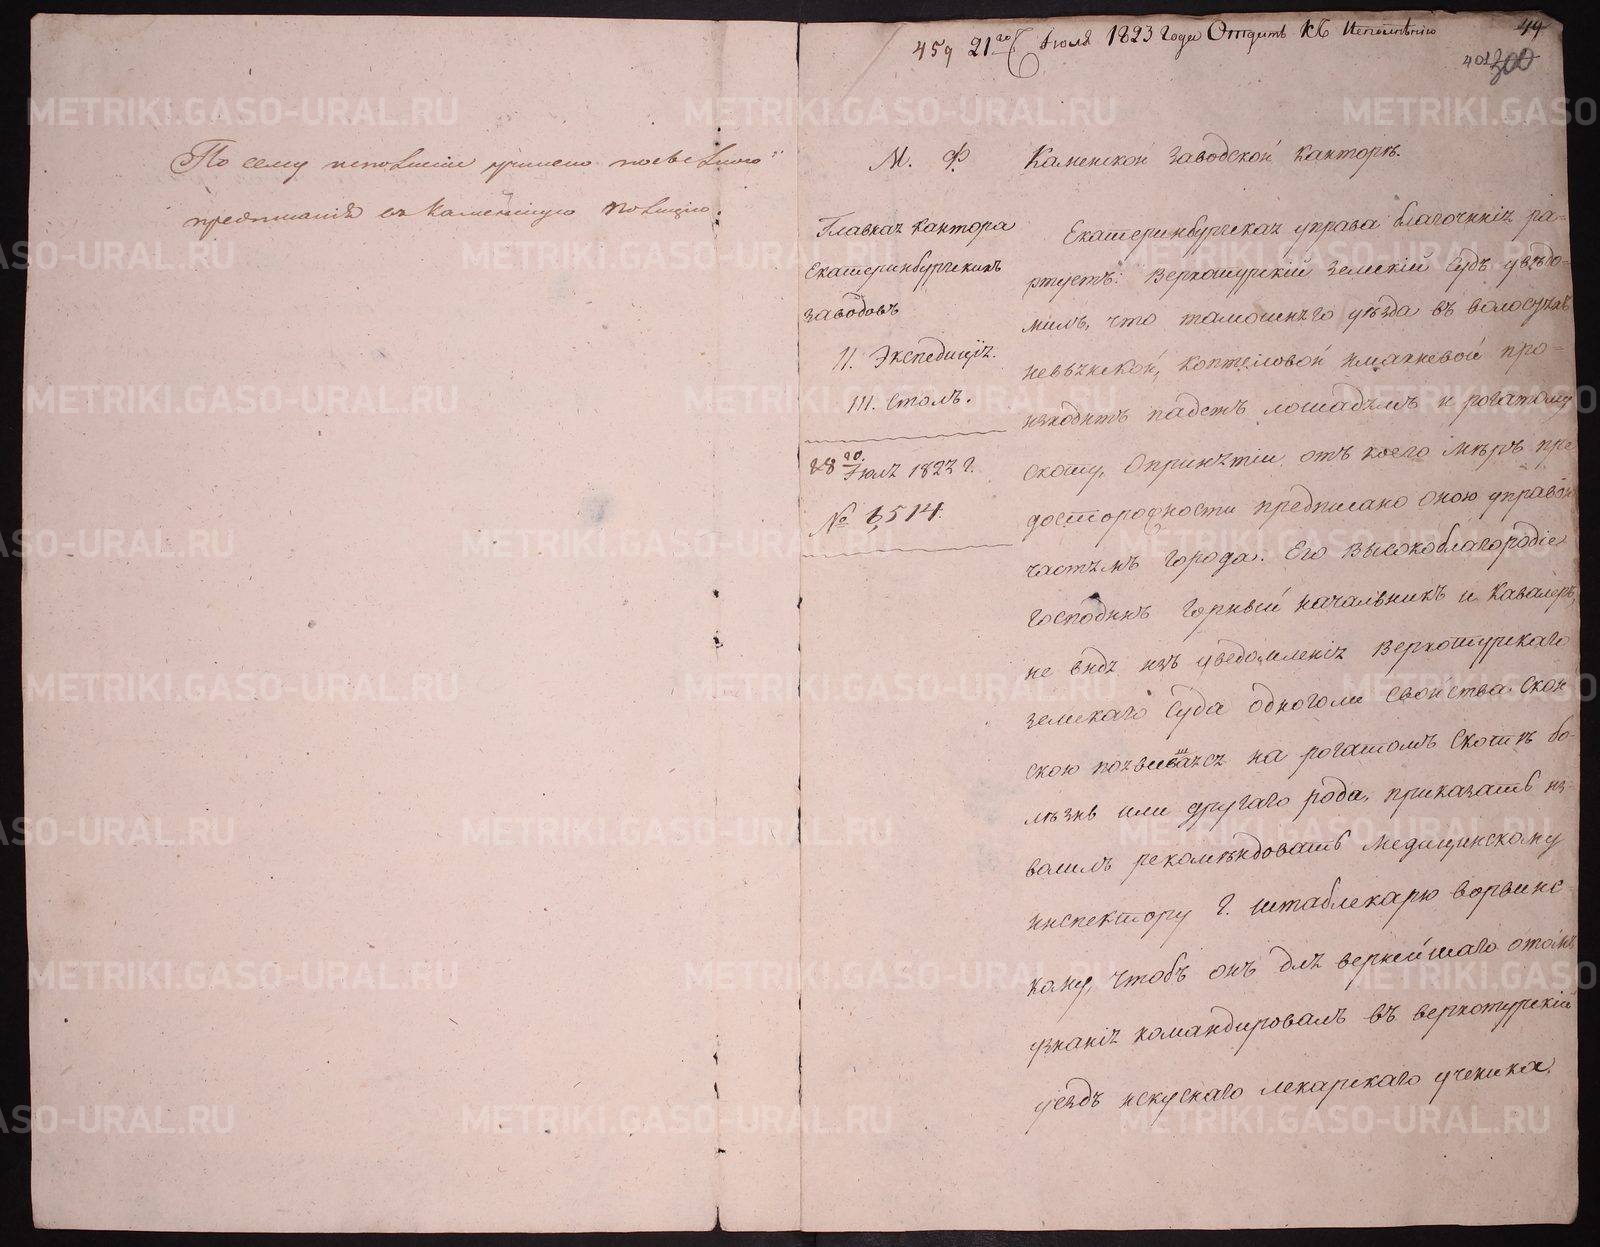 По сему исполнение учинено посылкою
предписания въ Каменскую полицию.
459 21го Июля 1823 года Отдать къ исполнению
44
401
300
М. Ф.
Главная кантора
Екатеринбургскихъ
заводовъ
II. Экспедиція.
III. Столъ.
18го Июля 1823 г.
№ 6514.
Каменской заводской канторѣ.
Екатеринбургская управа благочинія ра-
портуетъ: Верхотурскій земскій Судъ увѣдо-
милъ, что тамошняго уѣзда въ волостяхъ
невьянской, коптеловой и махневой про-
изходитъ падежъ лошадямъ и рогатому
скоту, О принятіи отъ коего мѣръ пре-
досторожности предписано оною управою
частямъ города. Его Высокоблагородіе
господинъ горный начальникъ и Кавалеръ,
не видя изъ уведомленія Верхотурскаго
земскаго Суда одного ли свойства с кон-
скою появившаяся на рогатомъ Скотѣ бо-
лѣзнь или другаго рода, приказать из-
волилъ рекомѣндовать медицинскому
инспектору г. штаблекарю ворвинс-
кому, чтобъ онъ для вернейшаго о томъ
узнанія командировалъ въ верхотурскій
уездъ искуснаго лекарскаго ученика,